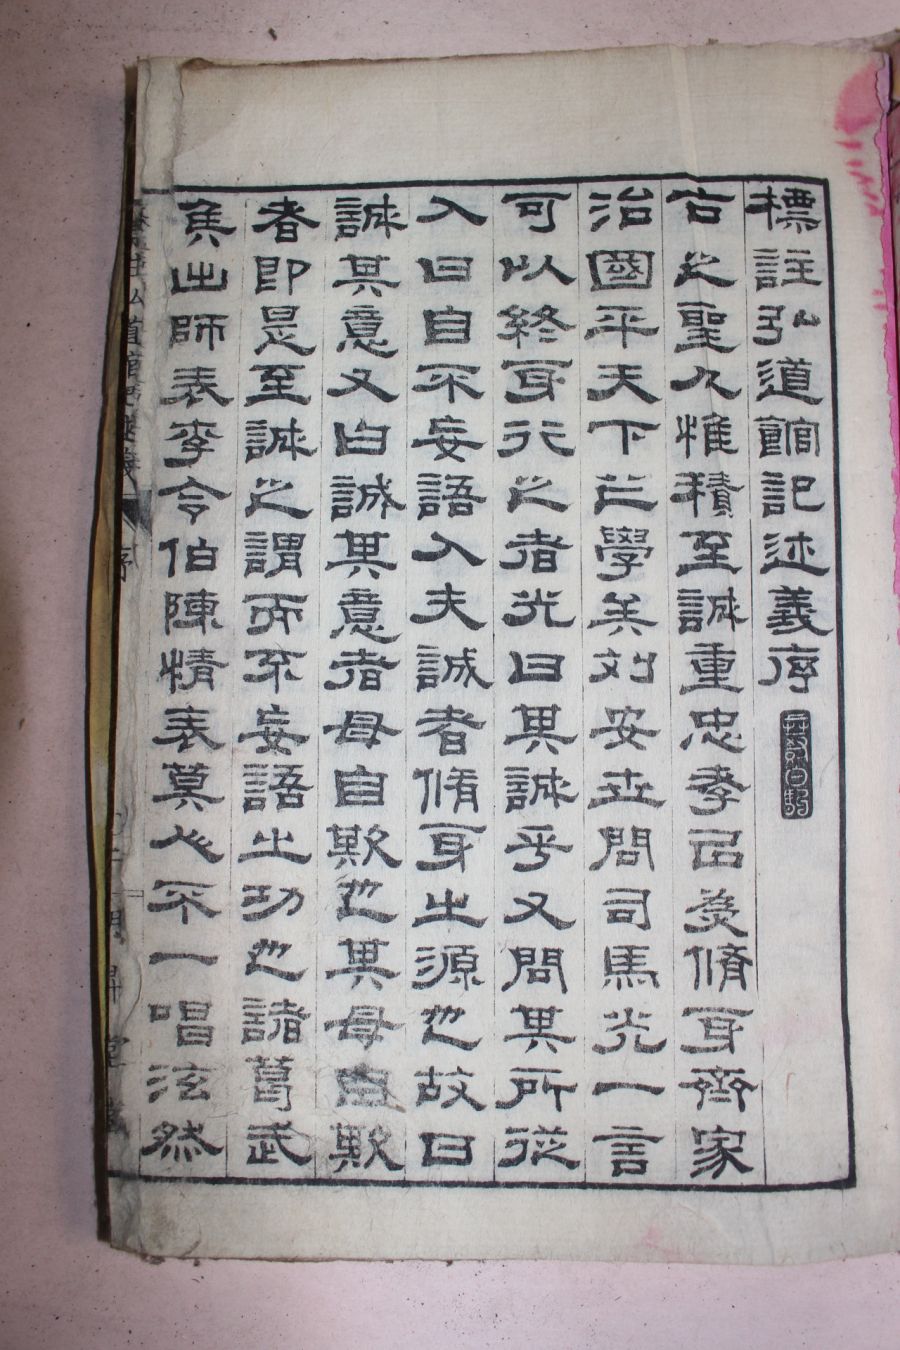 標註弘道館記述義序
古之聖人惟積至誠重忠孝㠯爲脩身齊家
治國平天下之學矣劉安世問司馬光一言
可以終身行之者光曰其誠乎又問其所從
入曰自不妄語入夫誠者脩身之源也故曰
誠其意又曰誠其意者毋自欺也其毋自欺
者即是至誠之謂而不妄語之功也諸葛武
矦出師表李令伯陳情表莫也不一唱泫然
弘道館
序